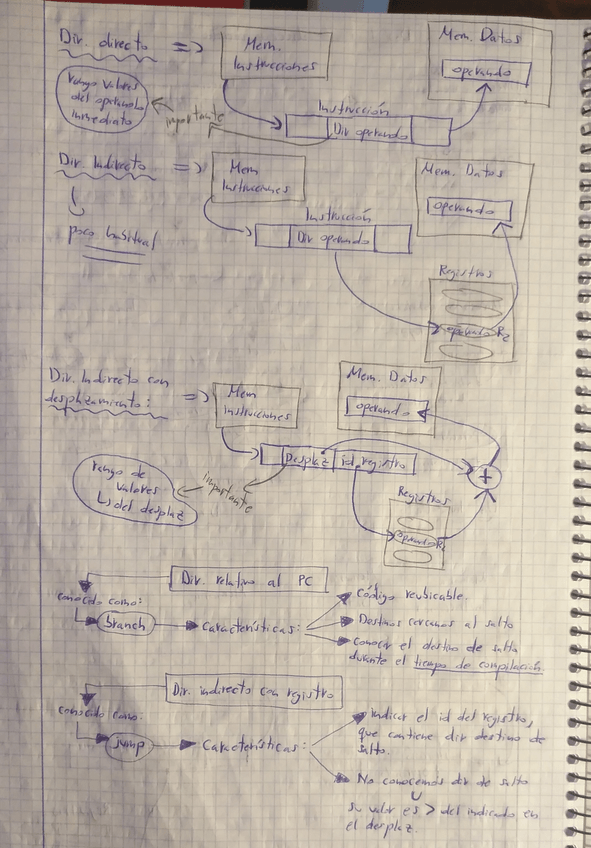 Dir. directo =>
Mem.
Instrucciones
Mem. Datos
operando
rango valores
del operando
inmediato
importante
Instrucción
Dir operando
Dir Indirecto =>
poco habitual
Mem
Instrucciones
Mem. Datos
operando
Instrucción
Dir operando
Registros
operando R2
Dir. Indirecto con
desplazamiento: =>
Mem
instrucciones
Mem. Datos
operando
Desplaz id registro
+
rango de
valores
del desplaz
importante
Registros
operando R2
Dir. relativo al PC
conocido como:
branch
Características:
Código reubicable.
Destinos cercanos al salto
Conocer el destino de salto
durante el tiempo de compilación.
Dir. indirecto con registro
conocido como:
jump
Características:
indicar el id del registro,
que contiene dir destino de
salto.
No conocemos dir de salto
su valor es > del indicado en
el desplaz.